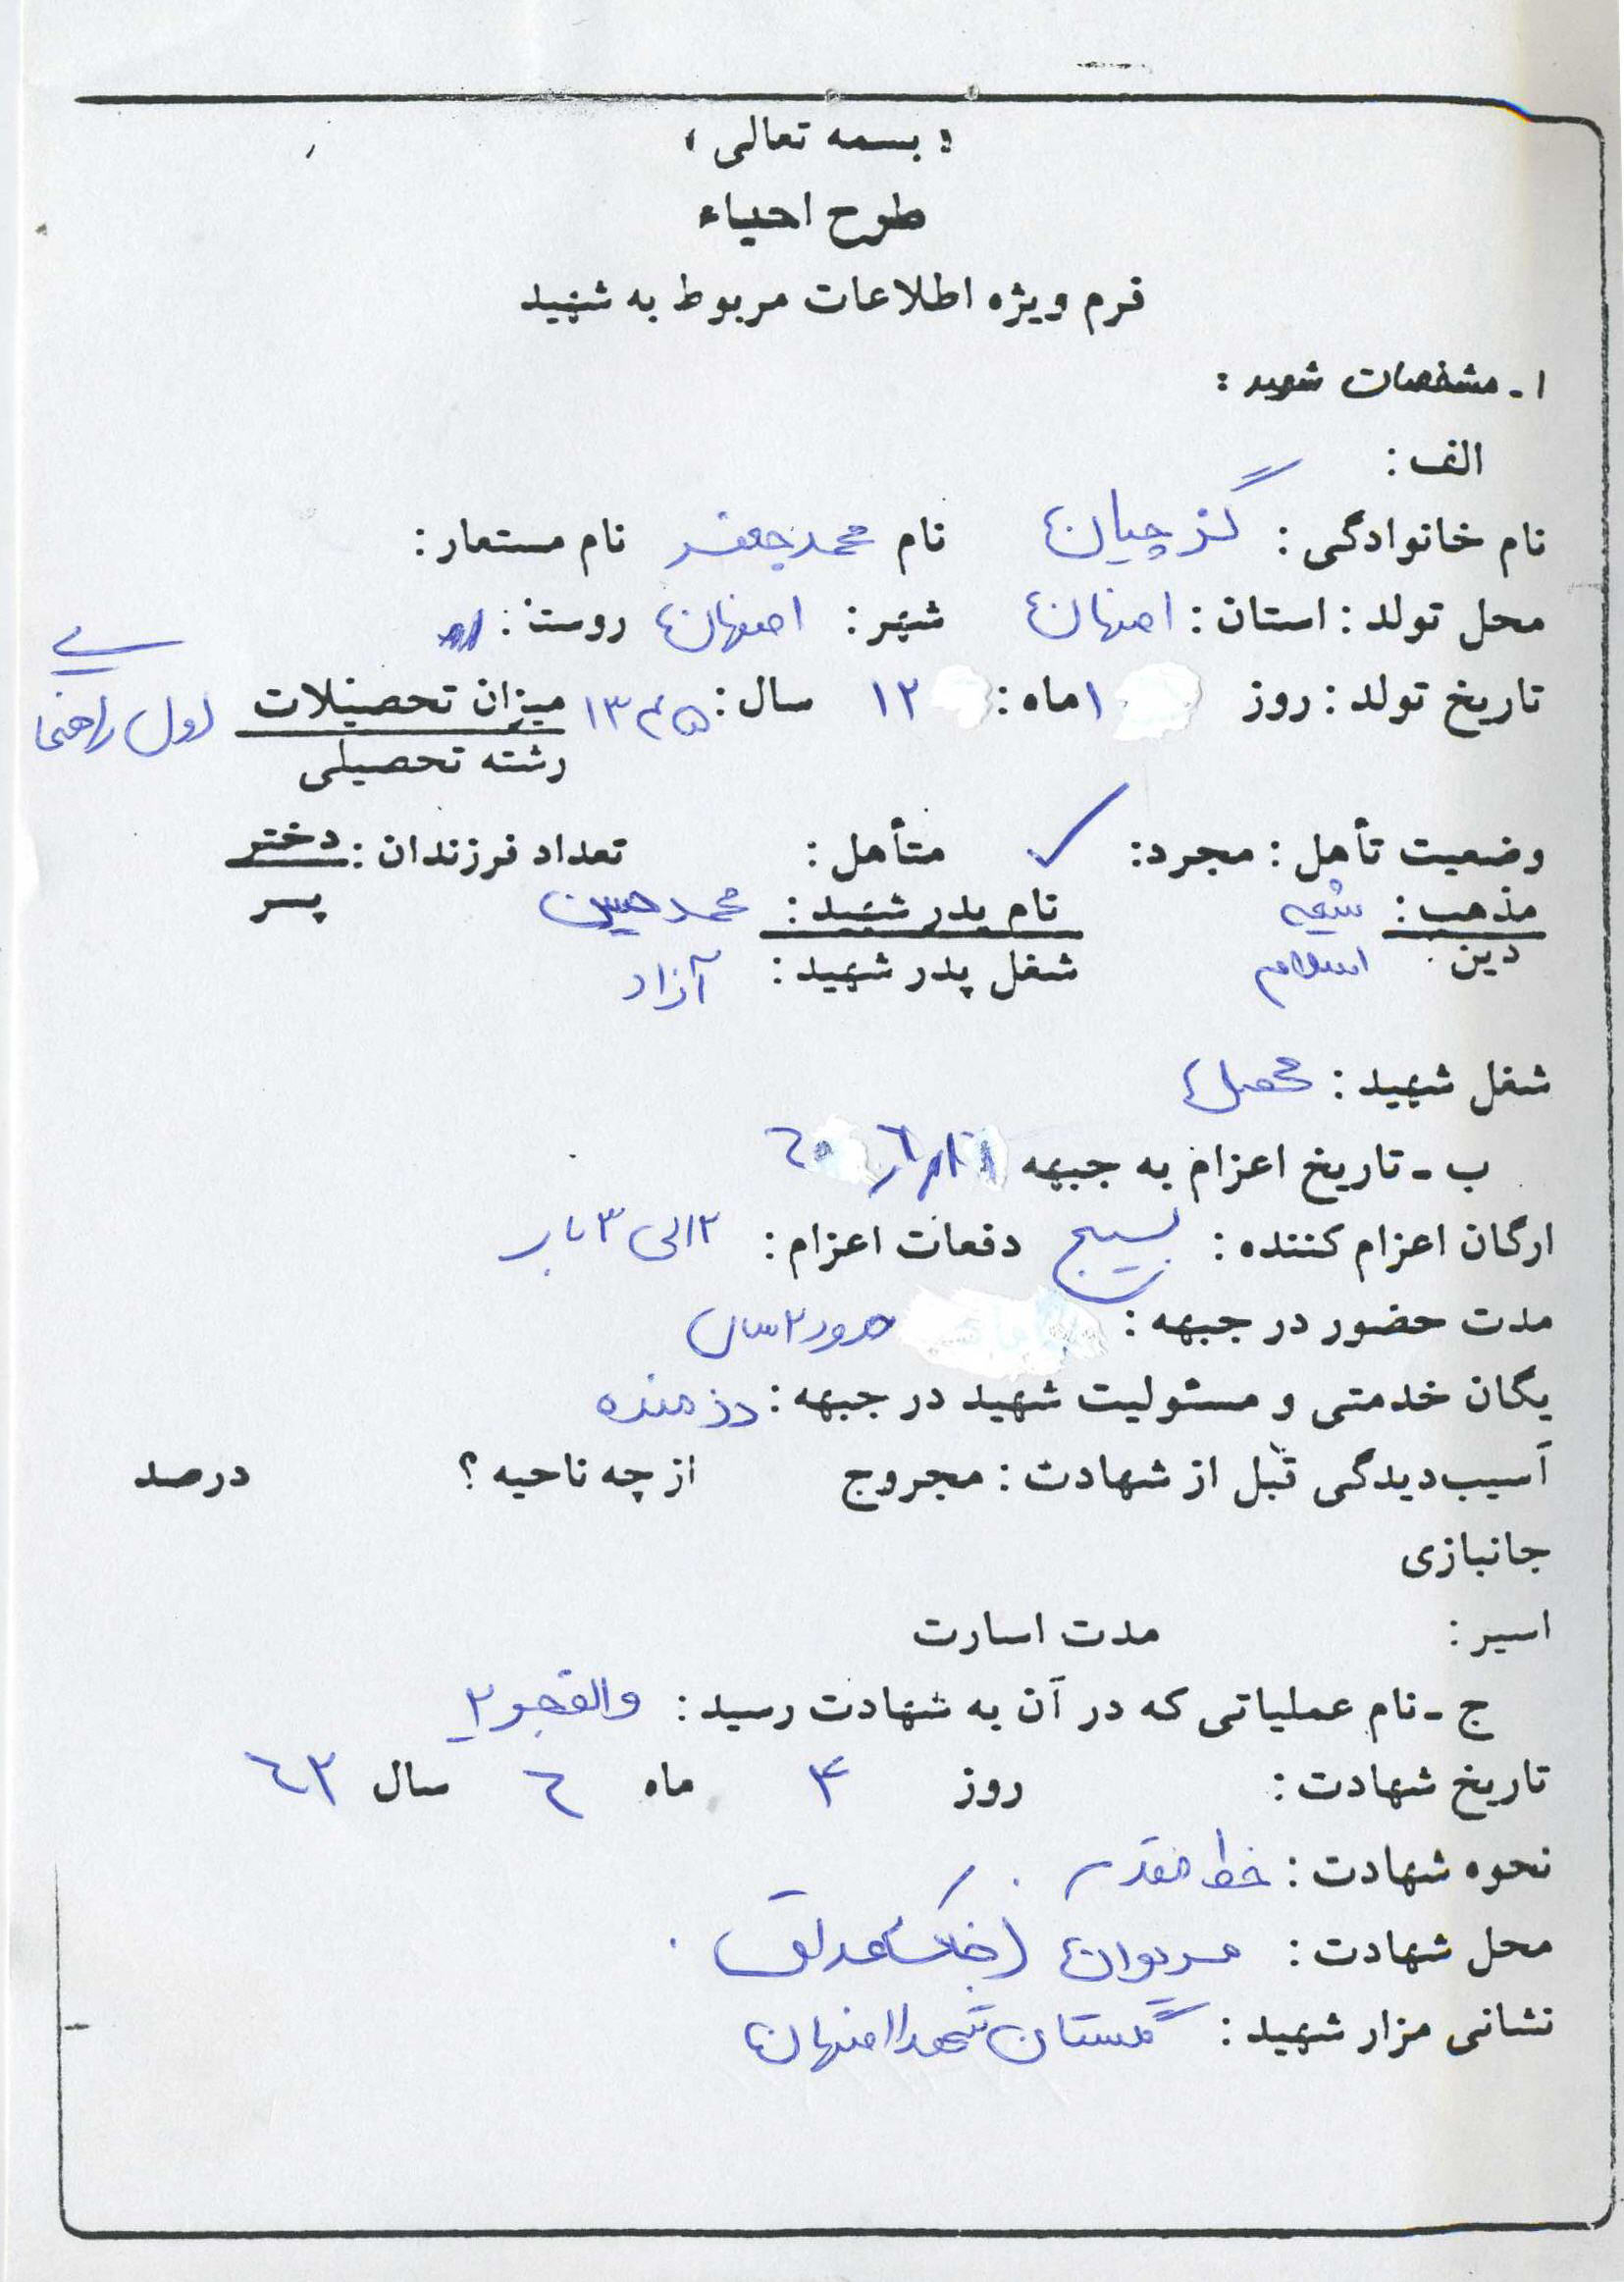 « بسمه تعالی »
طرح احیاء
فرم ویژه اطلاعات مربوط به شهید
۱ - مشخصات شهید :
الف :
نام خانوادگی : گزچیان نام محمدجعفر نام مستعار :
محل تولد : استان : اصفهان شهر : اصفهان روستا :
تاریخ تولد : روز ۱ ماه : ۱۲ سال : ۱۳۴۵ میزان تحصیلات اول راهنمایی
رشته تحصیلی
وضعیت تأهل : مجرد : ✓ متأهل : تعداد فرزندان : دختر
مذهب : شیعه نام پدر شهید : محمدحسین پسر
دین : اسلام شغل پدر شهید : آزاد
شغل شهید : محصل
ب - تاریخ اعزام به جبهه
ارگان اعزام کننده : بسیج دفعات اعزام : ۲ الی ۳ بار
مدت حضور در جبهه : حدود ۲ سال
یگان خدمتی و مسئولیت شهید در جبهه : رزمنده
آسیب‌دیدگی قبل از شهادت : مجروح از چه ناحیه ؟ درصد
جانبازی
اسیر : مدت اسارت
ج - نام عملیاتی که در آن به شهادت رسید : والفجر ۲
تاریخ شهادت : روز ۴ ماه ۶ سال ۶۲
نحوه شهادت : خط مقدم
محل شهادت : مریوان (خاک عراق)
نشانی مزار شهید : گلستان شهدا اصفهان